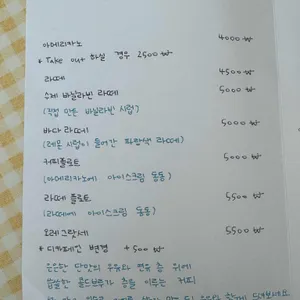 아메리카노 4000 ₩
* Take out 하실 경우 2500 ₩
라떼 4500 ₩
수제 바닐라빈 라떼 5000 ₩
(직접 만든 바닐라빈 시럽)
바다 라떼 5000 ₩
(레몬 시럽이 들어간 파랑색 라떼)
커피플로트 5000 ₩
(아메리카노에 아이스크림 동동)
라떼 플로트 5500 ₩
(라떼에 아이스크림 동동)
오레그랏세 5500 ₩
* 디카페인 변경 +500 ₩
은은한 단맛의 우유와 연유 층 위에
쌉쌀한 콜드브루가 층을 이루는 커피